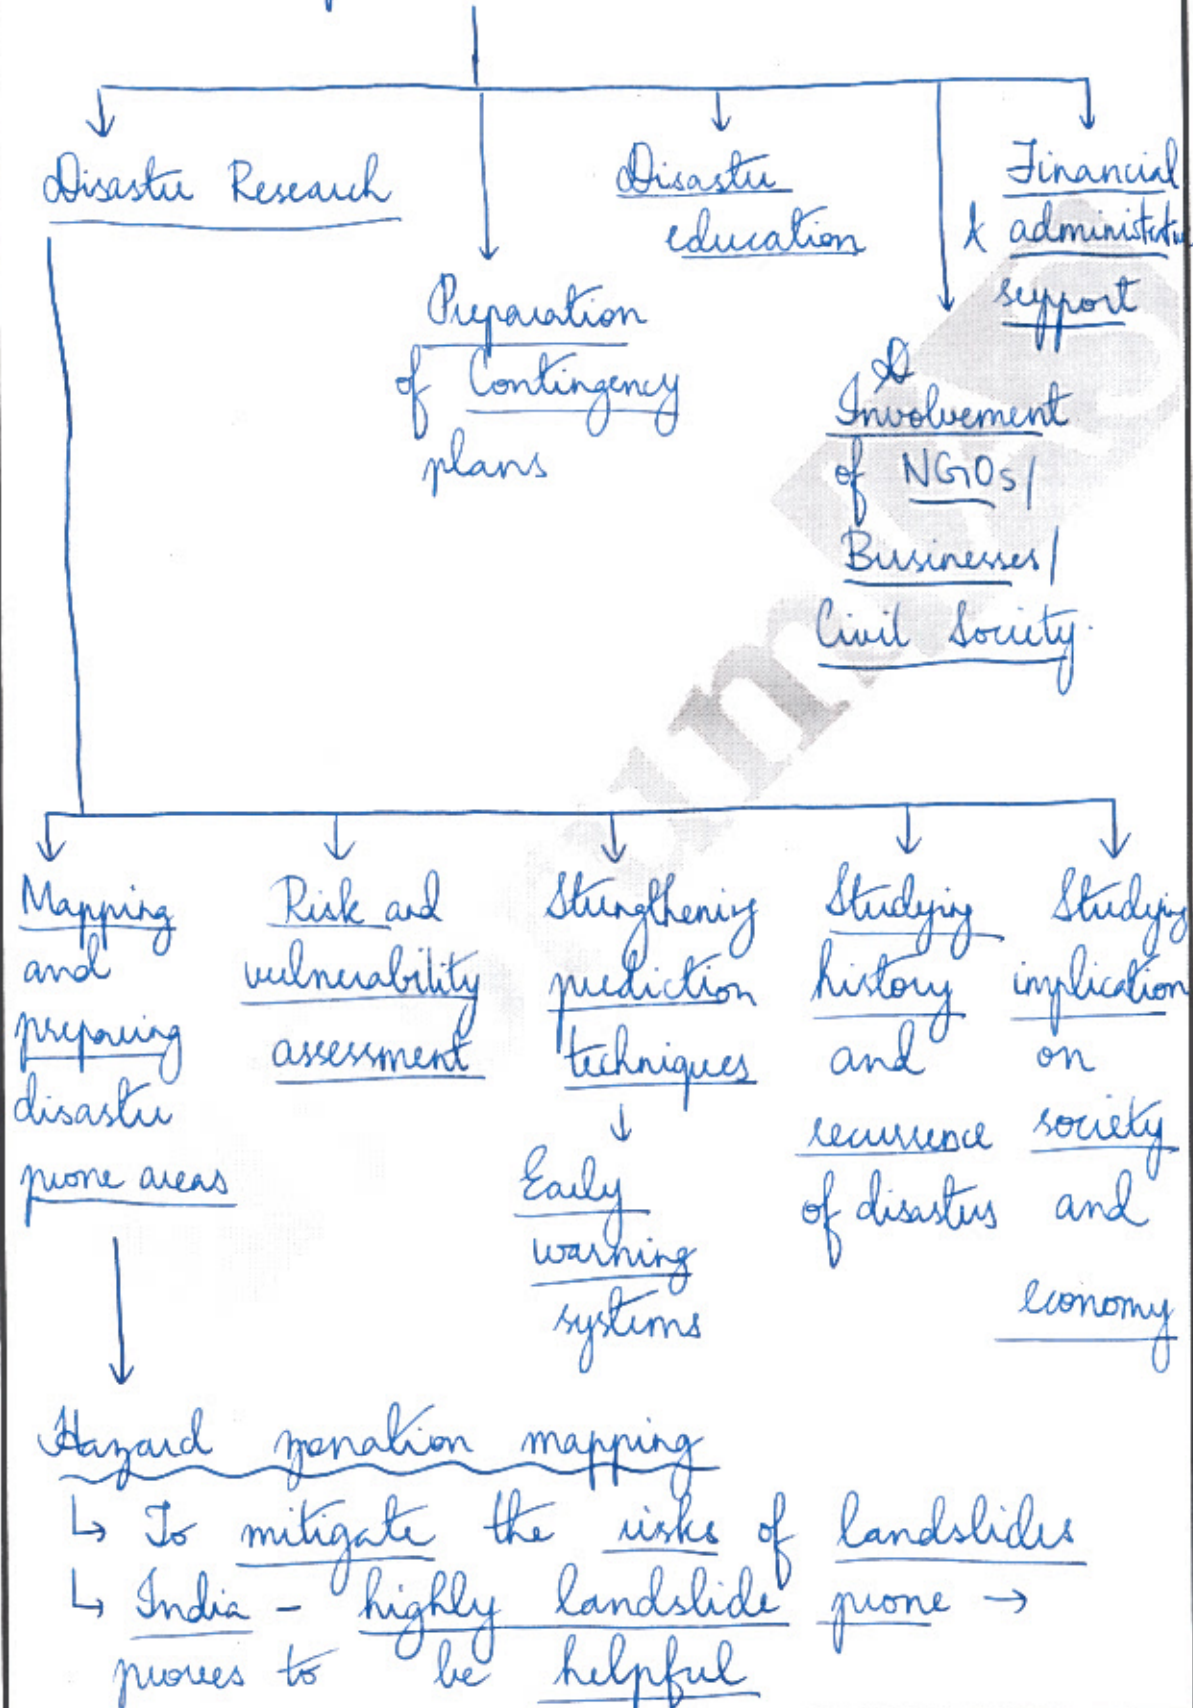 Disaster Research
Preparation
of Contingency
plans
Disaster
education
Involvement
of NGOs/
Businesses/
Civil Society.
Financial
& administrative
support
Mapping
and
preparing
disaster
prone areas
Risk and
vulnerability
assessment
Strengthening
prediction
techniques
Early
warning
systems
Studying
history
and
recurrence
of disasters
Studying
implication
on
society
and
economy
Hazard zonation mapping
↳ To mitigate the risks of landslides
↳ India - highly landslide prone →
proves to be helpful